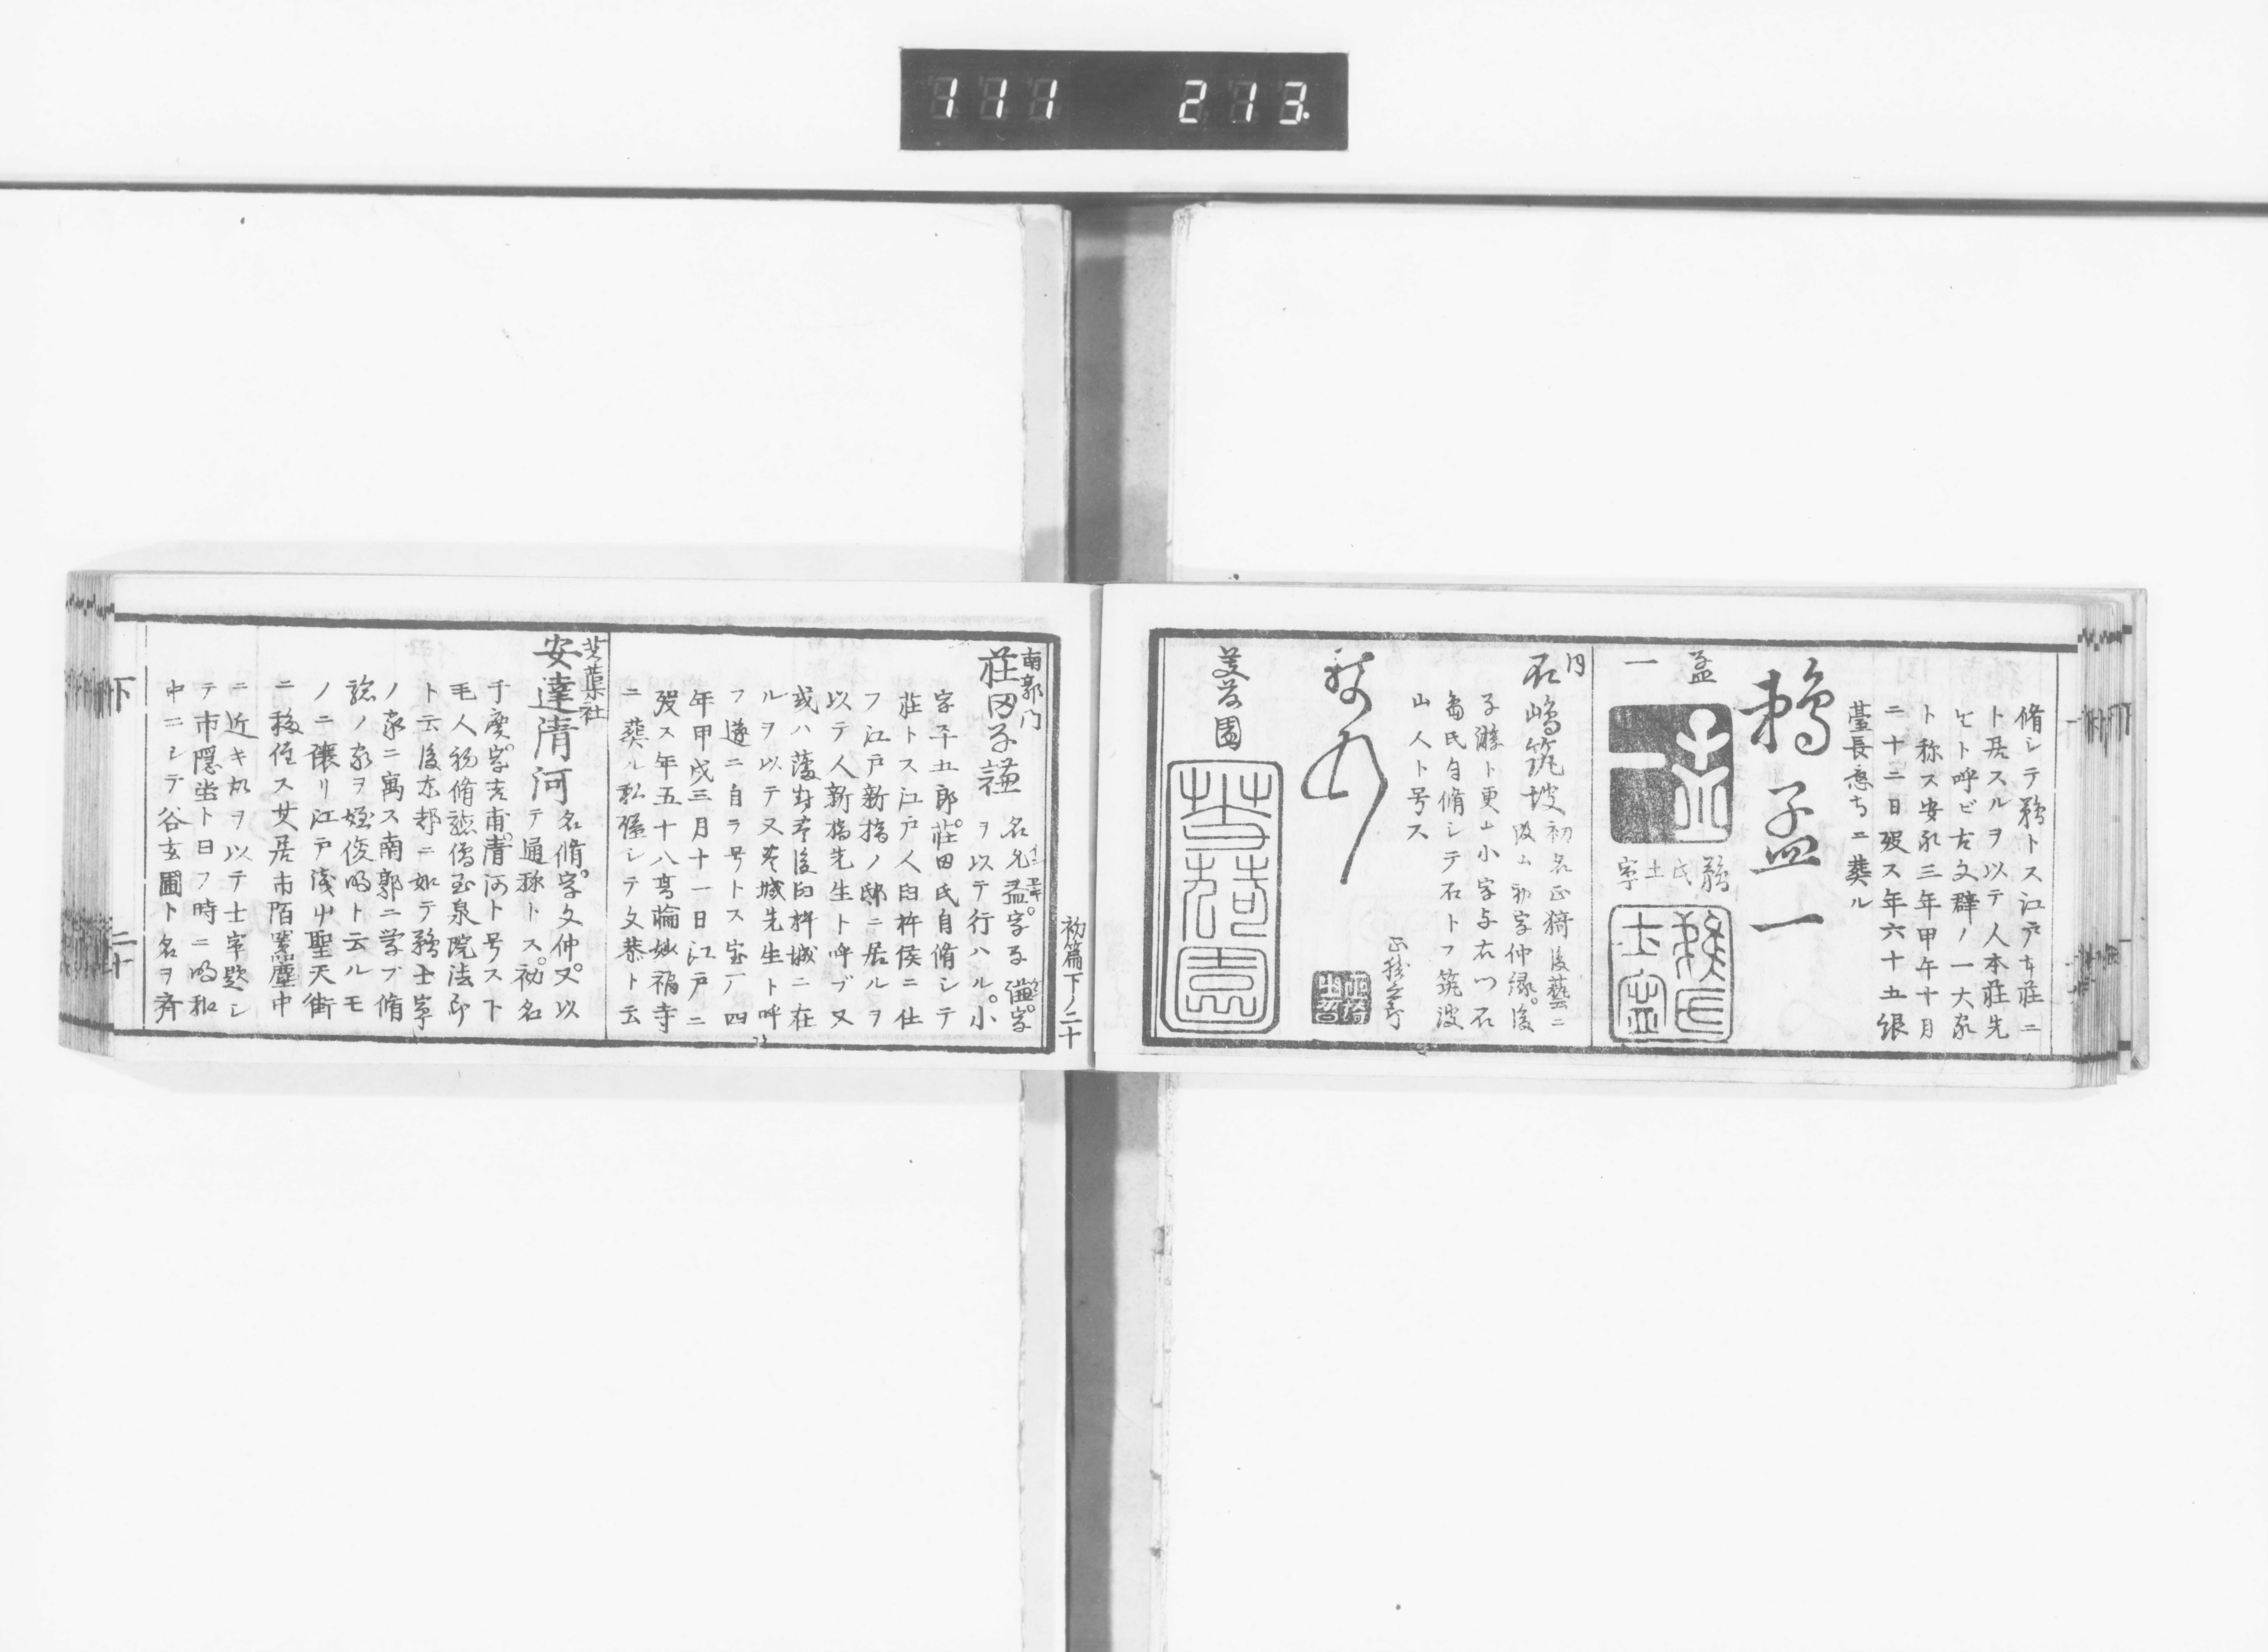 111 213
脩シテ鵜トス江戸本荘ニ
ト居スルヲ以テ人本荘先
生ト呼ビ古文辞ノ一大家
ト称ス安永三年甲午十月
二十二日歿ス年六十五
臺長
ニ葬ル
鵜孟一
孟
一
鵜氏士寧
石嶋筑坡
初名正猗後藝ニ
改ム初字仲緑後
子游ト更ム小字与右ヱ門石
嶋氏自脩シテ石トフ筑波
山人ト号ス
芰荷園
初篇下ノ二十
南郭门
莊田子謙
名允益字子謙字
ヲ以テ行ハル小
字平五郎莊田氏自脩シテ
莊トス江戸人臼杵侯ニ仕
フ江戸新橋ノ邸ニ居ルヲ
以テ人新橋先生ト呼ブ又
或ハ豊後臼杵城ニ在
ルヲ以テ又城先生ト呼
フ遂ニ自ラ号トス宝丆四
年甲戌三月十一日江戸ニ
歿ス年五十八高輪妙福寺
ニ葬ル私謚シテ文恭ト云
芙蕖社
安達清河
名脩字文仲又以
テ通称トス初名
于慶字吉甫清河ト号ス下
毛人初脩驗僧玉泉院法印
ト云後东都ニ如テ鵜士寧
ノ家ニ寓ス南郭ニ学ブ脩
驗ノ家ヲ姪俊明ト云ルモ
ノニ讓リ江戸浅中聖天街
ニ移住ス其居市陌塵中
ニ近キカヲ以テ士寧題シ
テ市隠堂ト曰フ時ニ鳴和
中ニシテ谷玄圃ト名ヲ斉
下 二十